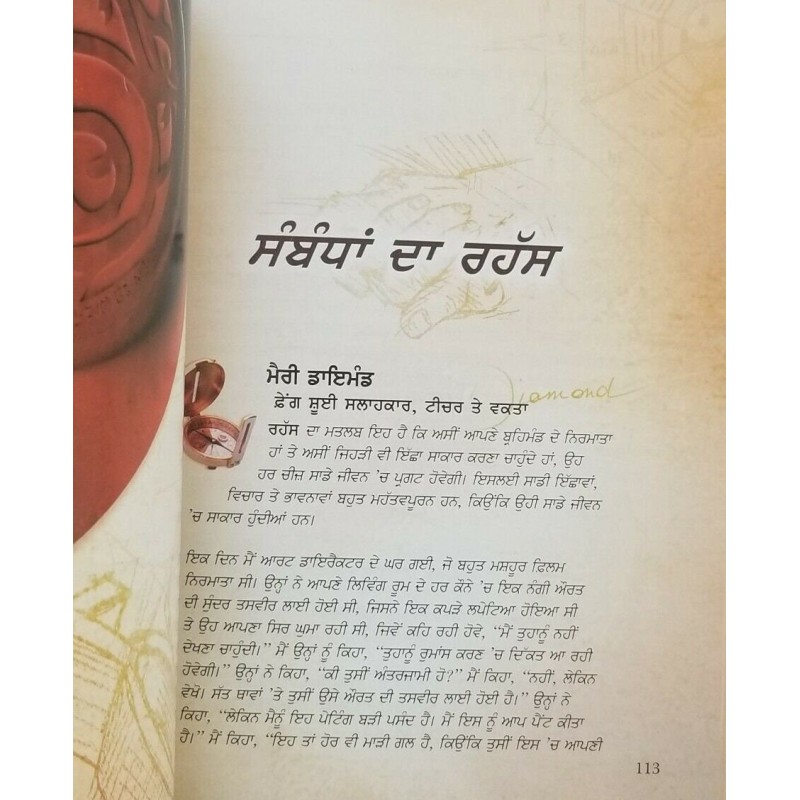 ਸੰਬੰਧਾਂ ਦਾ ਰਹੱਸ
ਮੈਰੀ ਡਾਇਮੰਡ
Diamond
ਫ਼ੇਂਗ ਸ਼ੂਈ ਸਲਾਹਕਾਰ, ਟੀਚਰ ਤੇ ਵਕਤਾ
ਰਹੱਸ ਦਾ ਮਤਲਬ ਇਹ ਹੈ ਕਿ ਅਸੀਂ ਆਪਣੇ ਬ੍ਰਹਿਮੰਡ ਦੇ ਨਿਰਮਾਤਾ
ਹਾਂ ਤੇ ਅਸੀਂ ਜਿਹੜੀ ਵੀ ਇੱਛਾ ਸਾਕਾਰ ਕਰਣਾ ਚਾਹੁੰਦੇ ਹਾਂ, ਉਹ
ਹਰ ਚੀਜ਼ ਸਾਡੇ ਜੀਵਨ ’ਚ ਪ੍ਰਗਟ ਹੋਵੇਗੀ। ਇਸਲਈ ਸਾਡੀ ਇੱਛਾਵਾਂ,
ਵਿਚਾਰ ਤੇ ਭਾਵਨਾਵਾਂ ਬਹੁਤ ਮਹੱਤਵਪੂਰਨ ਹਨ, ਕਿਉਂਕਿ ਉਹੀ ਸਾਡੇ ਜੀਵਨ
’ਚ ਸਾਕਾਰ ਹੁੰਦੀਆਂ ਹਨ।
ਇਕ ਦਿਨ ਮੈਂ ਆਰਟ ਡਾਇਰੈਕਟਰ ਦੇ ਘਰ ਗਈ, ਜੋ ਬਹੁਤ ਮਸ਼ਹੂਰ ਫਿਲਮ
ਨਿਰਮਾਤਾ ਸੀ। ਉਨ੍ਹਾਂ ਨੇ ਆਪਣੇ ਲਿਵਿੰਗ ਰੂਮ ਦੇ ਹਰ ਕੌਨੇ ’ਚ ਇਕ ਨੰਗੀ ਔਰਤ
ਦੀ ਸੁੰਦਰ ਤਸਵੀਰ ਲਾਈ ਹੋਈ ਸੀ, ਜਿਸਨੇ ਇਕ ਕਪੜੇ ਲਪੇਟਿਆ ਹੋਇਆ ਸੀ
ਤੇ ਉਹ ਆਪਣਾ ਸਿਰ ਘੁਮਾ ਰਹੀ ਸੀ, ਜਿਵੇਂ ਕਹਿ ਰਹੀ ਹੋਵੇ, “ਮੈਂ ਤੁਹਾਨੂੰ ਨਹੀਂ
ਦੇਖਣਾ ਚਾਹੁੰਦੀ।” ਮੈਂ ਉਨ੍ਹਾਂ ਨੂੰ ਕਿਹਾ, “ਤੁਹਾਨੂੰ ਰੁਮਾਂਸ ਕਰਣ ’ਚ ਦਿੱਕਤ ਆ ਰਹੀ
ਹੋਵੇਗੀ।” ਉਨ੍ਹਾਂ ਨੇ ਕਿਹਾ, “ਕੀ ਤੁਸੀਂ ਅੰਤਰਜਾਮੀ ਹੋ?” ਮੈਂ ਕਿਹਾ, “ਨਹੀਂ, ਲੇਕਿਨ
ਵੇਖੋ। ਸੱਤ ਥਾਵਾਂ ’ਤੇ ਤੁਸੀਂ ਉਸੇ ਔਰਤ ਦੀ ਤਸਵੀਰ ਲਾਈ ਹੋਈ ਹੈ।” ਉਨ੍ਹਾਂ ਨੇ
ਕਿਹਾ, “ਲੇਕਿਨ ਮੈਨੂੰ ਇਹ ਪੇਟਿੰਗ ਬੜੀ ਪਸੰਦ ਹੈ। ਮੈਂ ਇਸ ਨੂੰ ਆਪ ਪੈਂਟ ਕੀਤਾ
ਹੈ।” ਮੈਂ ਕਿਹਾ, “ਇਹ ਤਾਂ ਹੋਰ ਵੀ ਮਾੜੀ ਗਲ ਹੈ, ਕਿਉਂਕਿ ਤੁਸੀਂ ਇਸ ’ਚ ਆਪਣੀ
113